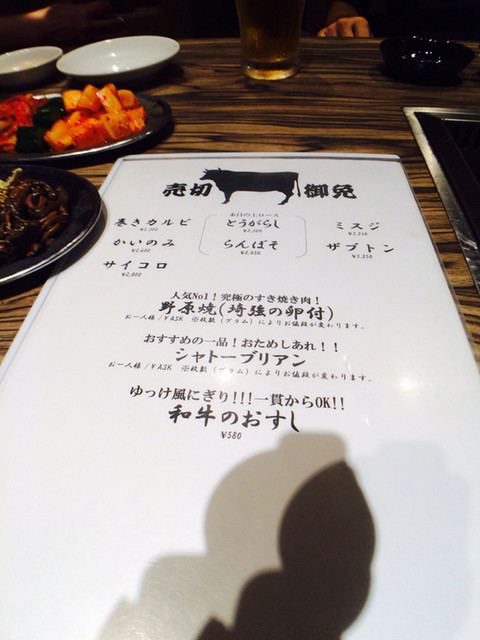 売切 御免
巻きカルビ
¥2,300
かいのみ
¥2,600
サイコロ
¥2,800
本日の上ロース
とうがらし
¥2,300
らんぼそ
¥2,450
ミスジ
¥3,250
ザブトン
¥3,250
人気No1！究極のすき焼き肉！
野原焼(埼強の卵付)
お一人様/¥ASK ※枚数(グラム)によりお値段が変わります。
おすすめの一品！おためしあれ！！
シャトーブリアン
お一人様/¥ASK ※枚数(グラム)によりお値段が変わります。
ゆっけ風にぎり!!!一貫からOK!!
和牛のおすし
¥580